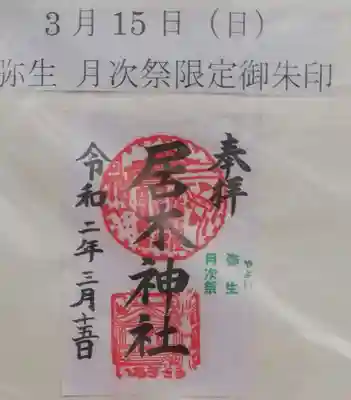 3月15日（日）
弥生 月次祭限定御朱印
奉拝
居木神社
やよい
弥生
月次祭
令和二年三月十五日